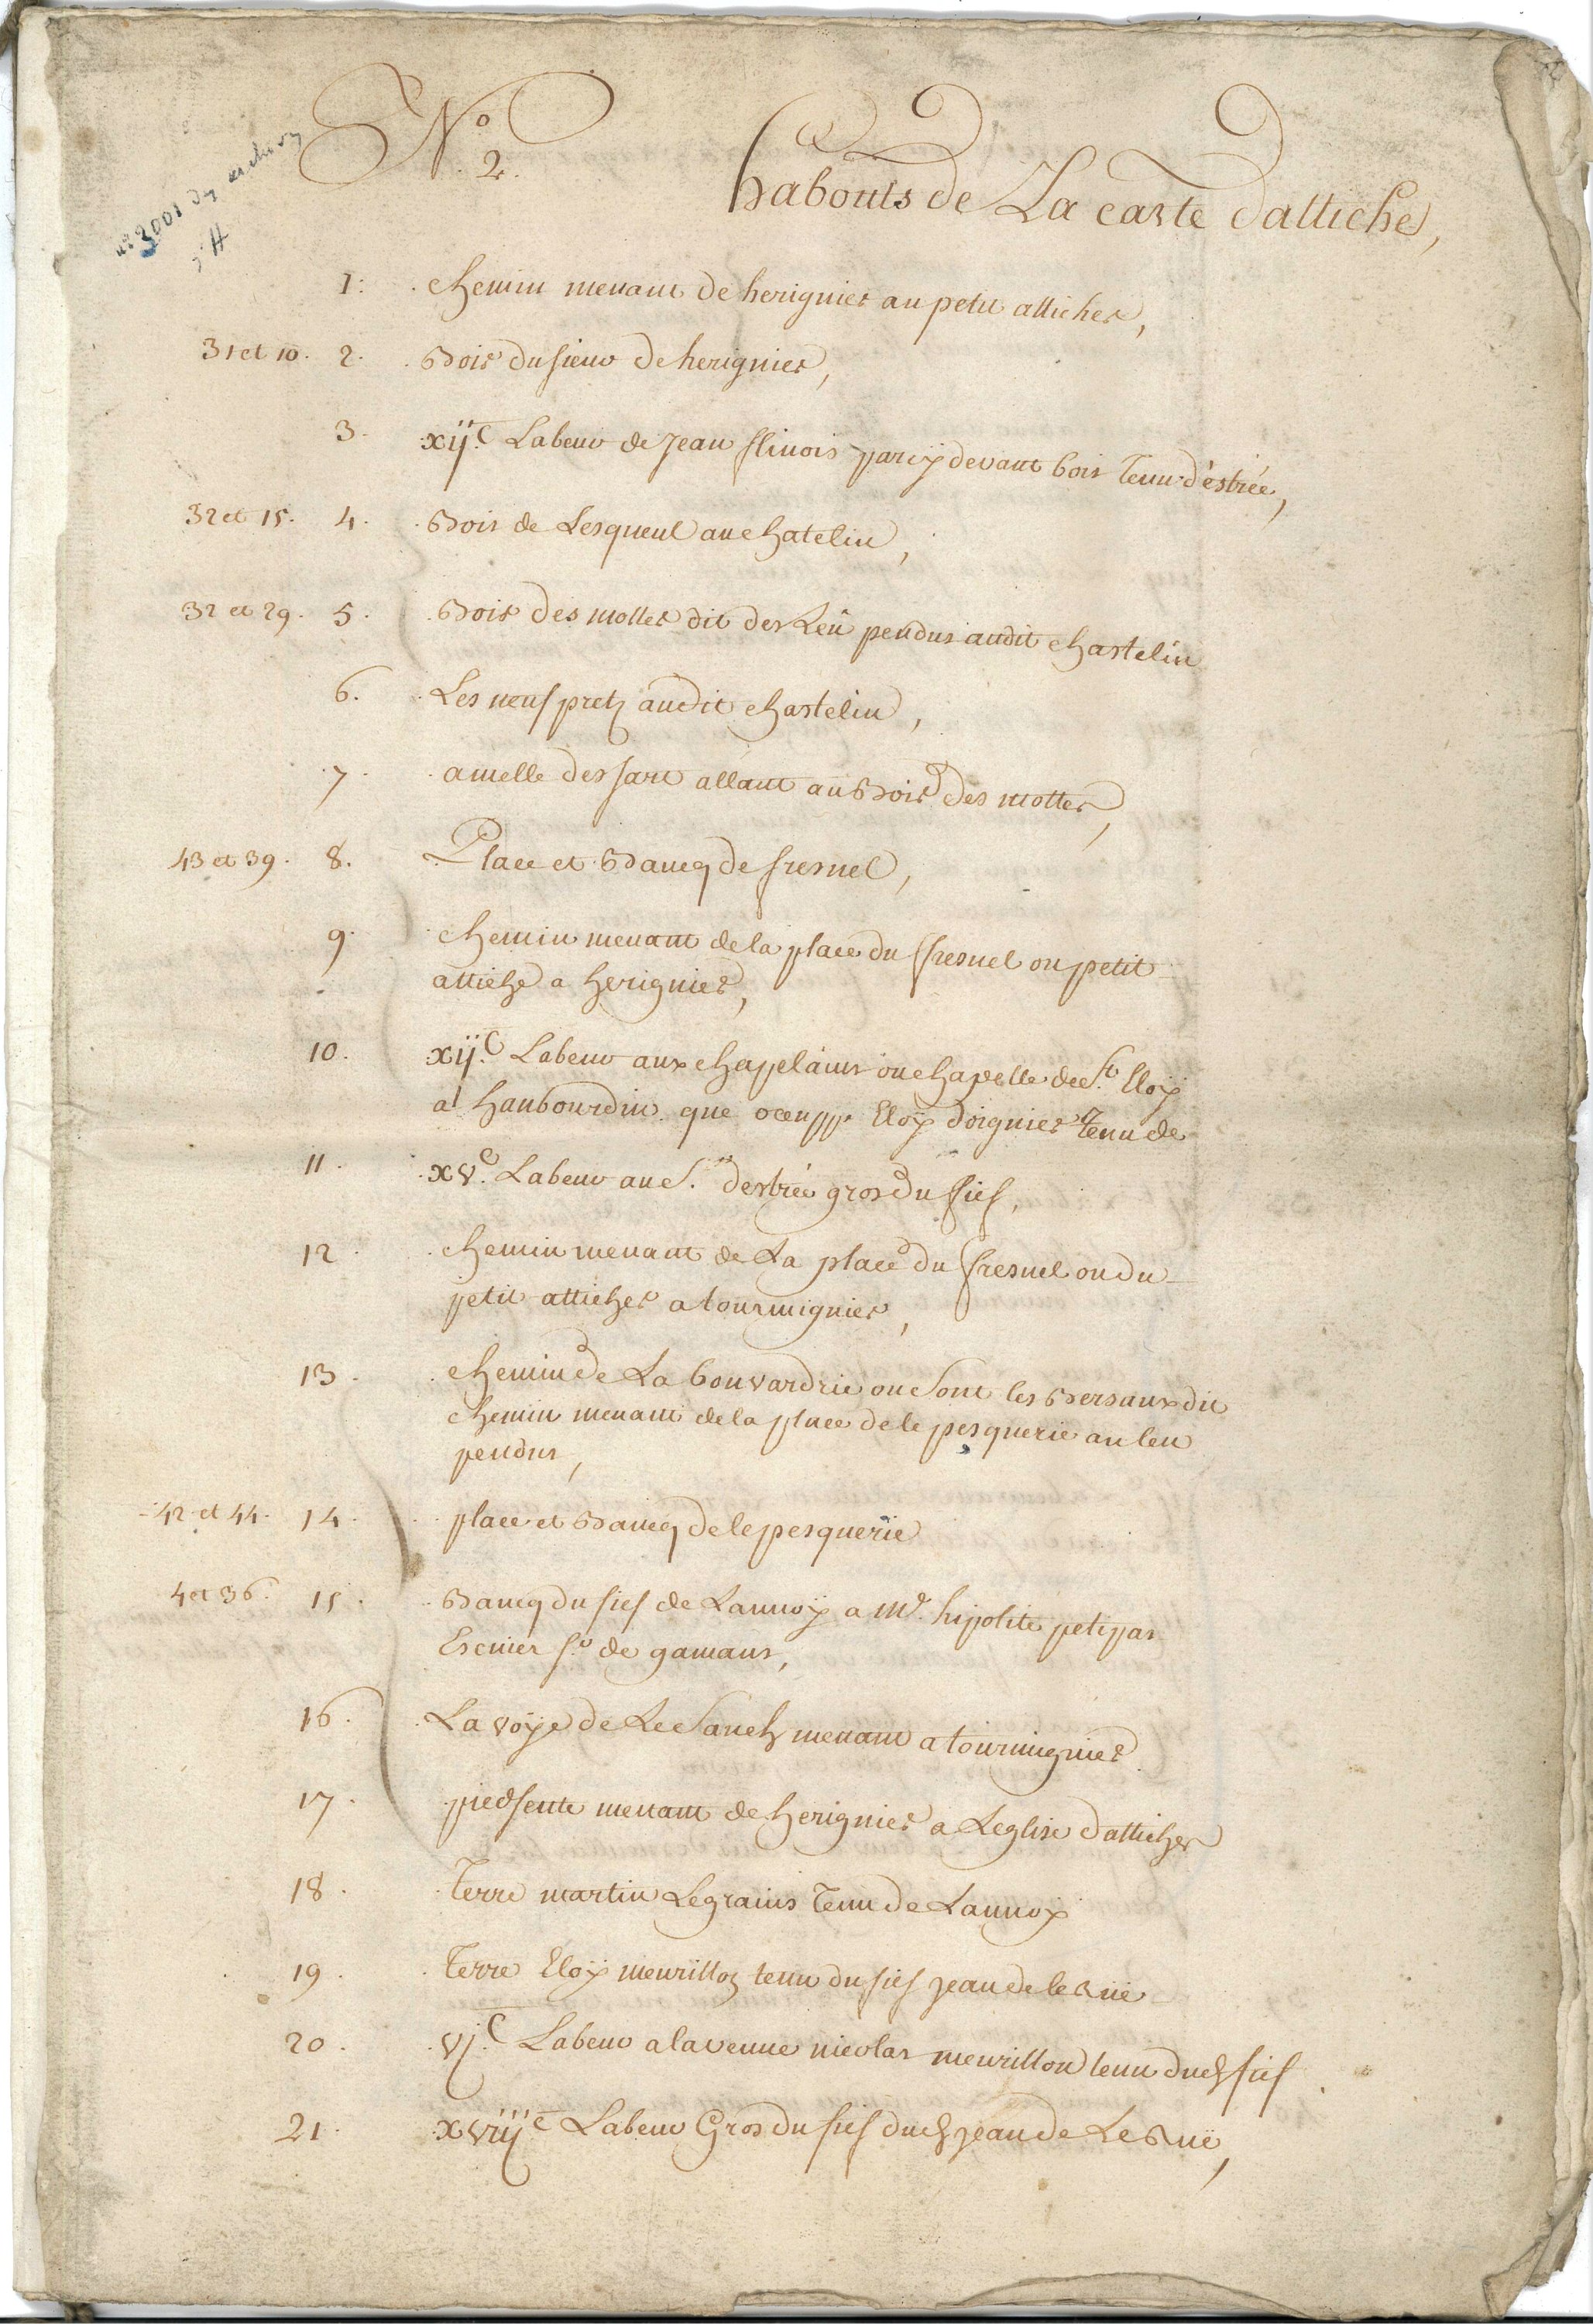 N.º 2.
habouts de La carte dattiche,
nº 3001 des archives
1: chemin menant de herignies au petit attiches,
31 et 10. 2. Bois du sieur de herignies,
3. xij.C Labeur de Jean flinois par cÿ devant bois tenu d'estrée,
32 et 15. 4. Bois de Lesqueul au chatelin,
32 et 29. 5. Bois des mottes dit des Leû pendus audit chastelin
6. Les neuf pretz audit chastelin,
7. amelle des sart allant au Bois des mottes,
43 et 39. 8. Place et Bancq de fresnel,
9. chemin menant de la place du fresnel ou petit
attiche a herignies,
10. xij.C Labeur aux chapelains ou chapelle de St. Eloÿ
a haubourdin que occuppe Eloÿ doignies tenu de
11. xv.C Labeur au S.r destrée gros du fief,
12. chemin menant de La place du fresnel ou du
petit attiches a tourmignies,
13. chemin de La bouvardrie ou sont les Bersaux dit
chemin menant de la place de le pesquerie au leu
pendus,
42 et 44. 14. place et Bancq de le pesquerie
4 et 36. 15. Bancq du fief de Lannoÿ a Mr. hipolite petipas
Escuier sr. de gamans,
16. La voÿe de Le Sauch menant a tourmignies
17. piedsente menant de herignies a Leglise dattiches
18. Terre martin Legrains tenu de Lannoÿ
19. Terre Eloÿ meurillon tenu du fief jean de le Rüe
20. vj.C Labeur a la veuve nicolas meurillon tenu dud. fief
21. xviij.C Labeur Gros du fief dud. jean de Le Rüe,